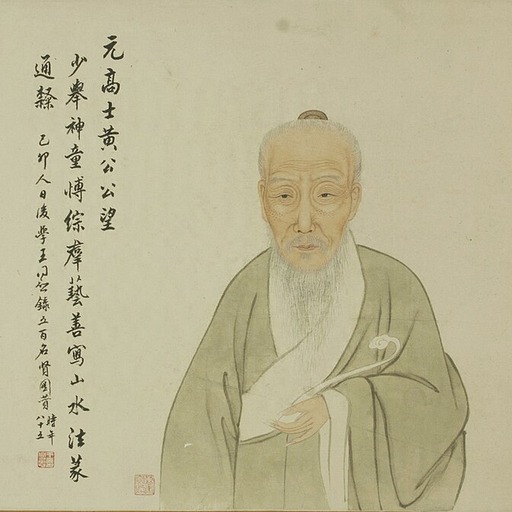 元高士黄公公望
少舉神童愽綜羣藝善寫山水法篆
通隸 己卯人日後學王同愈錄五百名賢圖贊 時年八十五